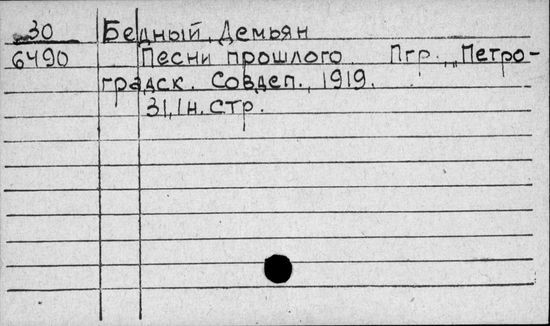 30 Бедный, Демьян
6490 Песни прошлого. Пгр., „Петро-
градск. Совдеп., 1919.
31,1н.стр.